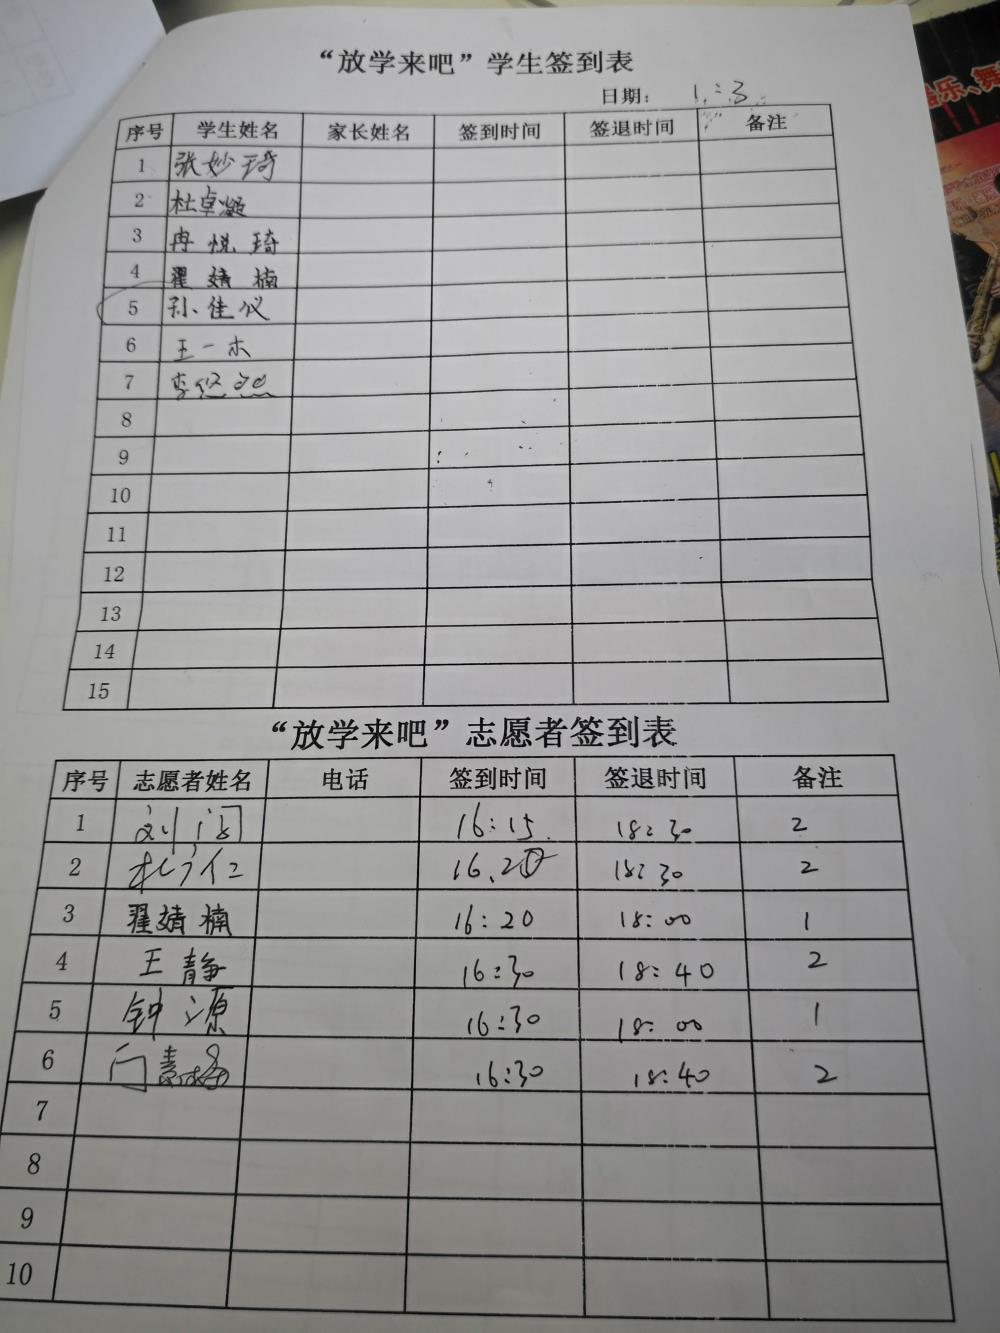 “放学来吧”学生签到表
日期： 1.23
序号 学生姓名 家长姓名 签到时间 签退时间 备注
1 张妙琦
2 杜卓凝
3 冉悦琦
4 翟婧楠
5 孙佳仪
6 王一木
7 李悠然
8
9
10
11
12
13
14
15
“放学来吧”志愿者签到表
序号 志愿者姓名 电话 签到时间 签退时间 备注
1 16:15 18:30 2
2 16.20 18:30 2
3 翟婧楠 16:20 18:00 1
4 王静 16:30 18:40 2
5 钟源 16:30 18:00 1
6 16:30 18:40 2
7
8
9
10
乐、舞